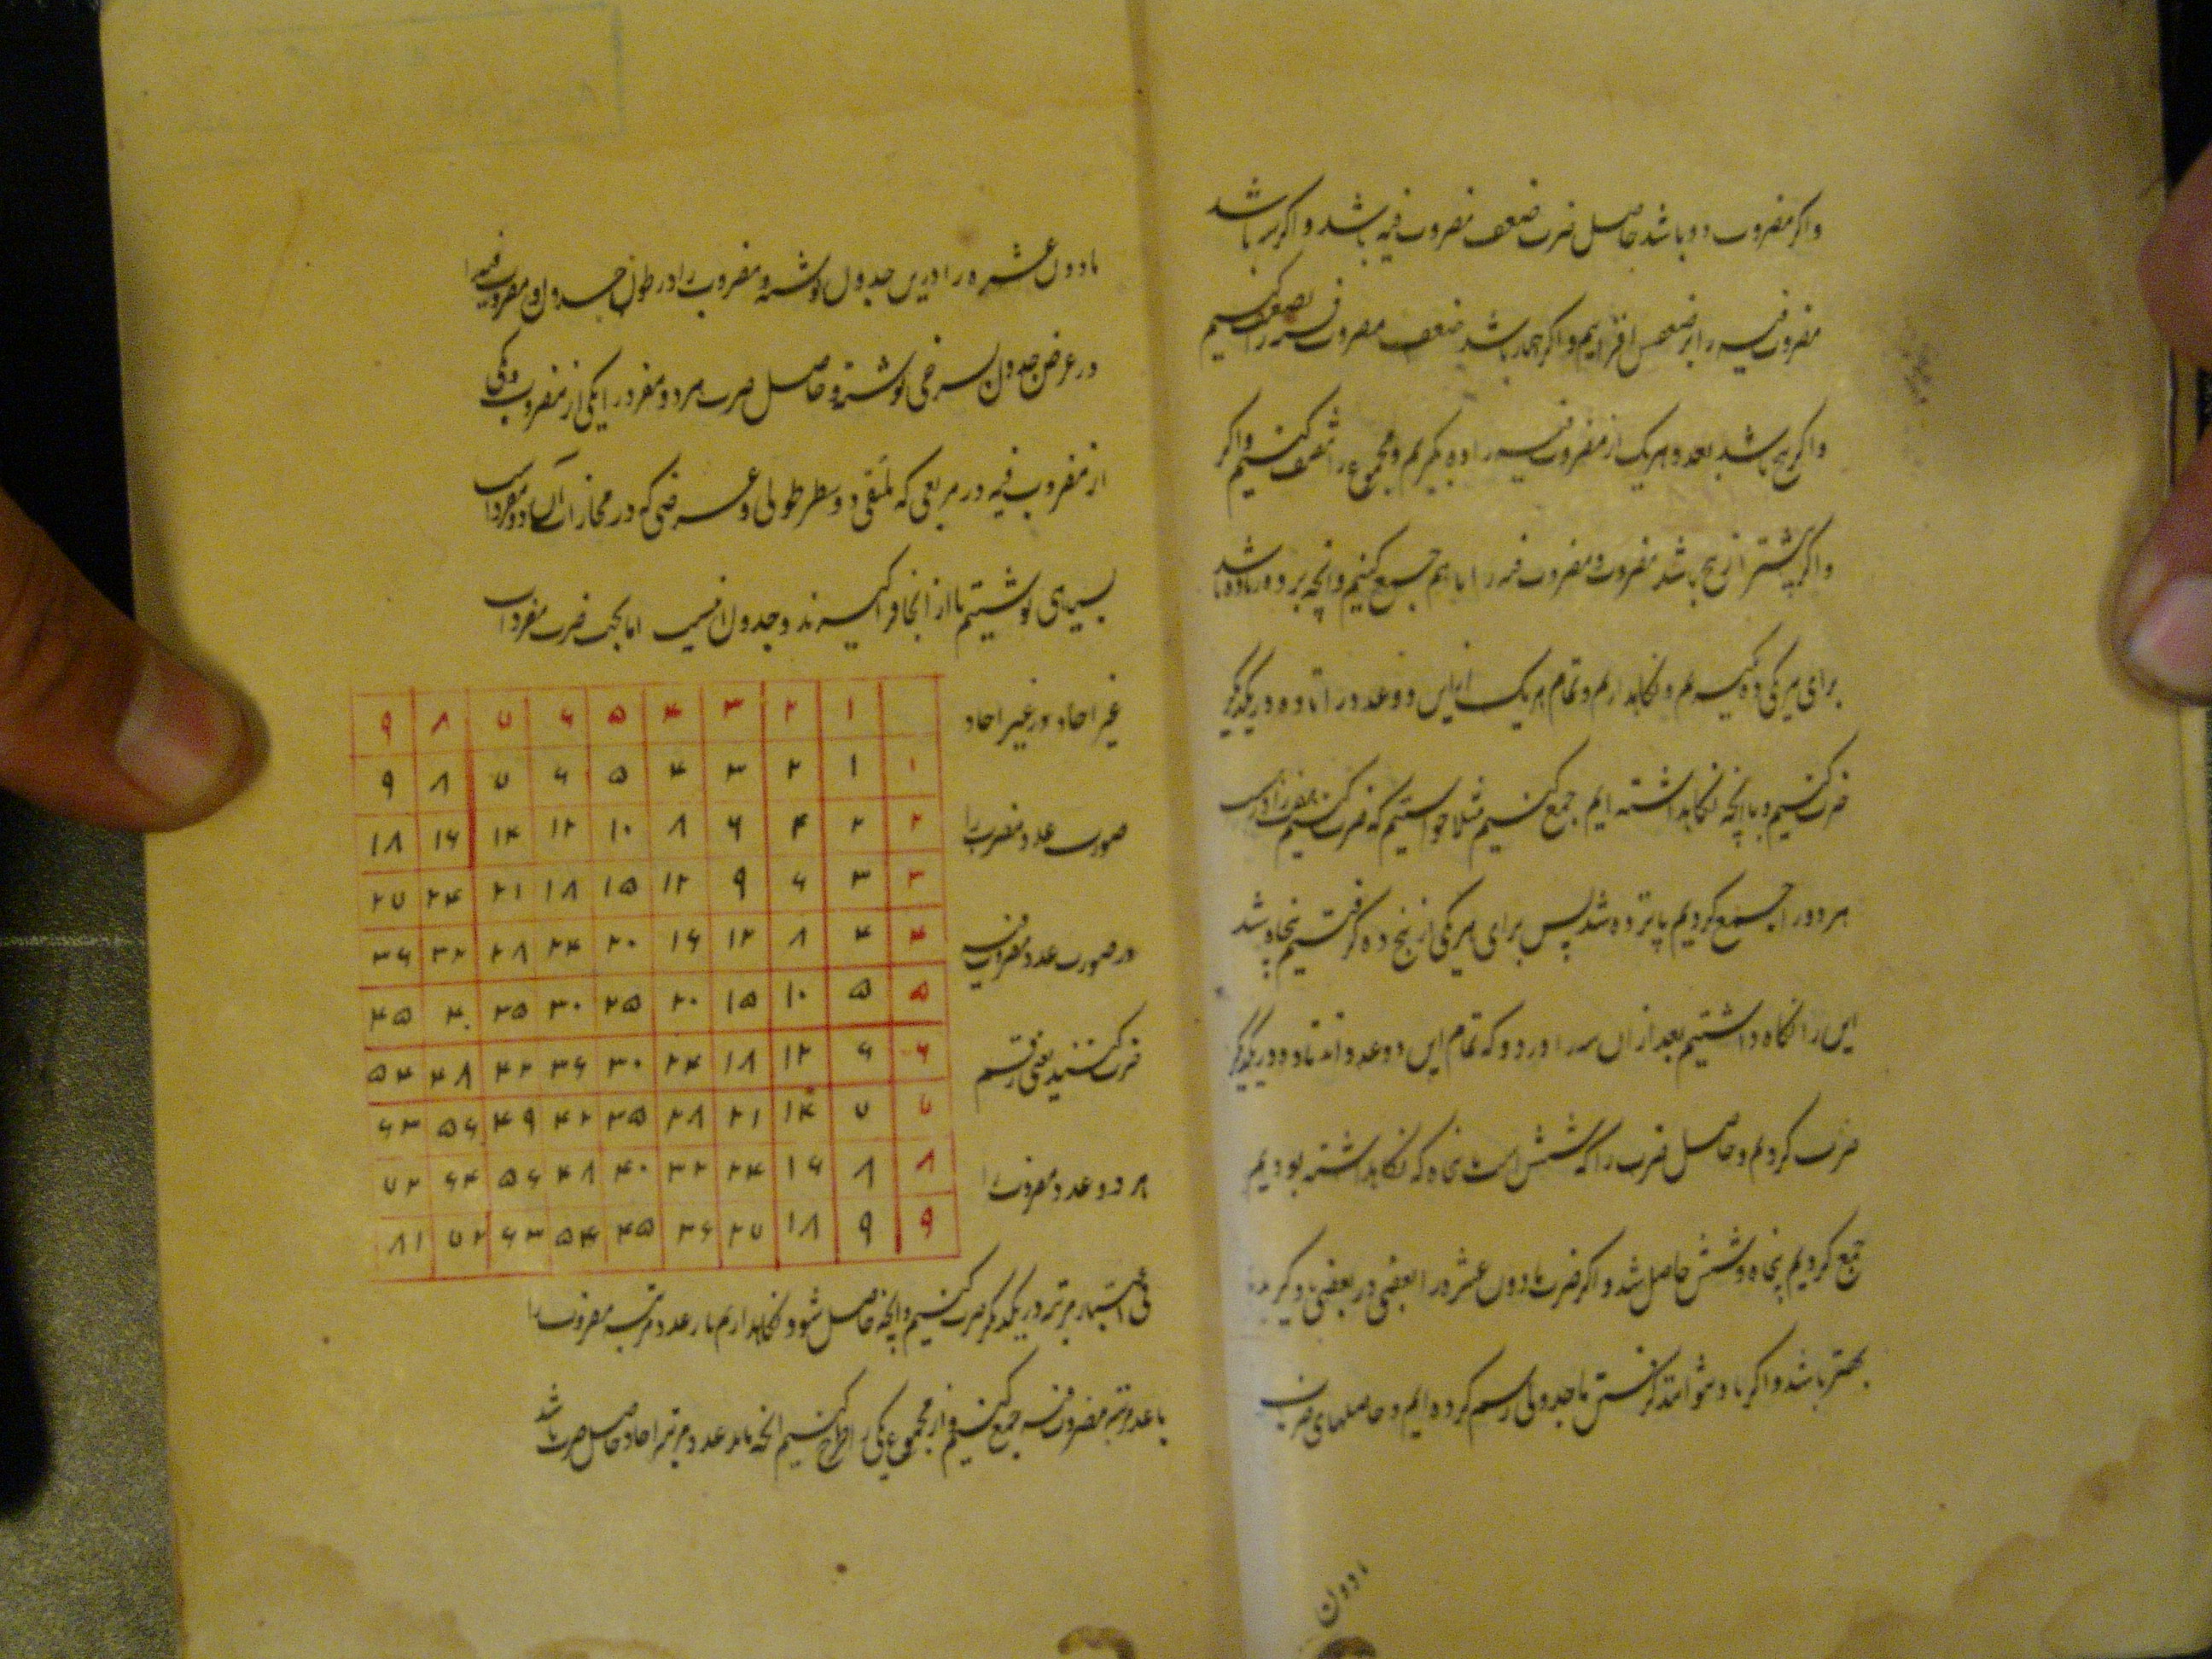 واکر مضروب دو باشد حاصل ضرب ضعف مضروب فیه باشد و اکر سه باشد
مضروب فیه را بر ضعفش افزاییم و اکر چهار باشد ضعف مضروب فیه را تضعیف کنیم
و اکر پنج باشد بعدد هر یک از مضروب فیه را ده بکیریم و مجموع را تنصیف کنیم و اکر
و اکر بیشتر از پنج باشد مضروب و مضروب فیه را با هم جمع کنیم و آنچه بر ده زیاده باشد
برای هر یکی ده کیریم و نکاهداریم و تمام هر یک از این دو عدد را تا ده در یکدیکر
ضرب کنیم و با آنچه نکاهداشته ایم جمع کنیم مثلا خواستیم که ضرب کنیم
هر دو را جمع کردیم پانزده شد پس برای هر یکی از پنج ده کرفتیم پنجاه شد
این را نکاه داشتیم بعد از ان سه را در دو که تمام این دو عدد اند تا ده در یکدیکر
ضرب کردیم و حاصل ضرب را که شش است با پنجاه که نکاهداشته بودیم
جمع کردیم پنجاه و شش حاصل شد و اکر ضرب مادون عشره را بعضی در بعضی یاد کیرند
بهتر باشد و اکر یاد نتوانند کرفتن ما جدولی رسم کرده ایم و حاصلهای ضرب
مادون
مادون عشره را درین جدول نوشته و مضروب را در طول جدول و مضروب فیه را
در عرض جدول بسرخی نوشته و حاصل ضرب هر دو مفرد را یکی از مضروب و یکی
از مضروب فیه در مربعی که ملتقی دو سطر طولی و عرضی که در محاذات آن دو مفرد است
بسیاهی نوشتیم تا از انجا فرا کیرند و جدول اینست اما بجهت ضرب مفردات
غیر احاد در غیر احاد
صورت عدد مضروب را
در صورت عدد مضروب فیه
ضرب کنید یعنی رقم
هر دو عدد مضروب را
۱ ۲ ۳ ۴ ۵ ۶ ۷ ۸ ۹
۱ ۱ ۲ ۳ ۴ ۵ ۶ ۷ ۸ ۹
۲ ۲ ۴ ۶ ۸ ۱۰ ۱۲ ۱۴ ۱۶ ۱۸
۳ ۳ ۶ ۹ ۱۲ ۱۵ ۱۸ ۲۱ ۲۴ ۲۷
۴ ۴ ۸ ۱۲ ۱۶ ۲۰ ۲۴ ۲۸ ۳۲ ۳۶
۵ ۵ ۱۰ ۱۵ ۲۰ ۲۵ ۳۰ ۳۵ ۴۰ ۴۵
۶ ۶ ۱۲ ۱۸ ۲۴ ۳۰ ۳۶ ۴۲ ۴۸ ۵۴
۷ ۷ ۱۴ ۲۱ ۲۸ ۳۵ ۴۲ ۴۹ ۵۶ ۶۳
۸ ۸ ۱۶ ۲۴ ۳۲ ۴۰ ۴۸ ۵۶ ۶۴ ۷۲
۹ ۹ ۱۸ ۲۷ ۳۶ ۴۵ ۵۴ ۶۳ ۷۲ ۸۱
بی اعتبار مرتبه در یکدیکر ضرب کنیم و آنچه حاصل شود نکاهداریم باز عدد مرتبه مضروب را
با عدد مرتبه مضروب فیه جمع کنیم و از مجموع یکی را طرح کنیم آنچه ماند عدد مرتبه احاد حاصل ضرب باشد